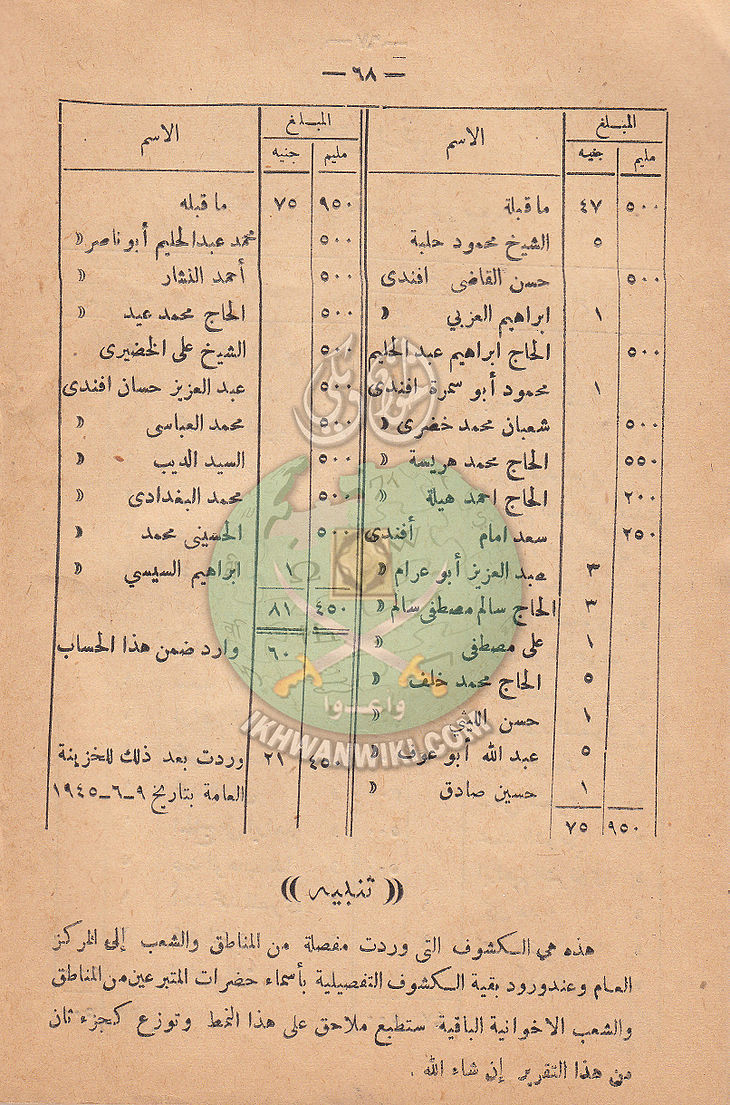 — ٦٨ —
المبلغ
مليم جنيه الاسم
٥٠٠ ٤٧ ما قبلة
٥ الشيخ محمود حلبة
٥٠٠ حسن القاضى افندى
١ ابراهيم العزبي »
٥٠٠ الحاج ابراهيم عبد الحليم
١ محمود أبو سمرة افندى
٥٠٠ شعبان محمد خضرى »
٥٥٠ الحاج محمد هريسة »
٢٠٠ الحاج احمد هيلة »
٢٥٠ سعد امام أفندى
٣ عبد العزيز أبو عرام »
٣ الحاج سالم مصطفى سالم »
١ على مصطفى »
٥ الحاج محمد خلف »
١ حسن الليثى »
٥ عبد الله أبو عوف »
١ حسين صادق »
٩٥٠ ٧٥
المبلغ
مليم جنيه الاسم
٩٥٠ ٧٥ ما قبله
٥٠٠ محمد عبدالحليم أبو ناصر »
٥٠٠ أحمد النشار »
٥٠٠ الحاج محمد عيد »
٥٠٠ الشيخ على الخضيرى
٥٠٠ عبد العزيز حسان افندى
٥٠٠ محمد العباسى »
٥٠٠ السيد الديب »
٥٠٠ محمد البغدادى »
٥٠٠ الحسينى محمد »
١ ابراهيم السيسي »
٤٥٠ ٨١
٦٠ وارد ضمن هذا الحساب
٤٥٠ ٢١ وردت بعد ذلك للخزينة
العامة بتاريخ ٩_٦_١٩٤٥
(( تنبيه ))
هذه هي الكشوف التى وردت مفصلة من المناطق والشعب إلى المركز
العام وعند ورود بقية الكشوف التفصيلية بأسماء حضرات المتبرعين من المناطق
والشعب الاخوانية الباقية ستطبع ملاحق على هذا النمط وتوزع كجزء ثان
من هذا التقرير إن شاء الله .
وأعدوا
IKHWANWIKI.COM